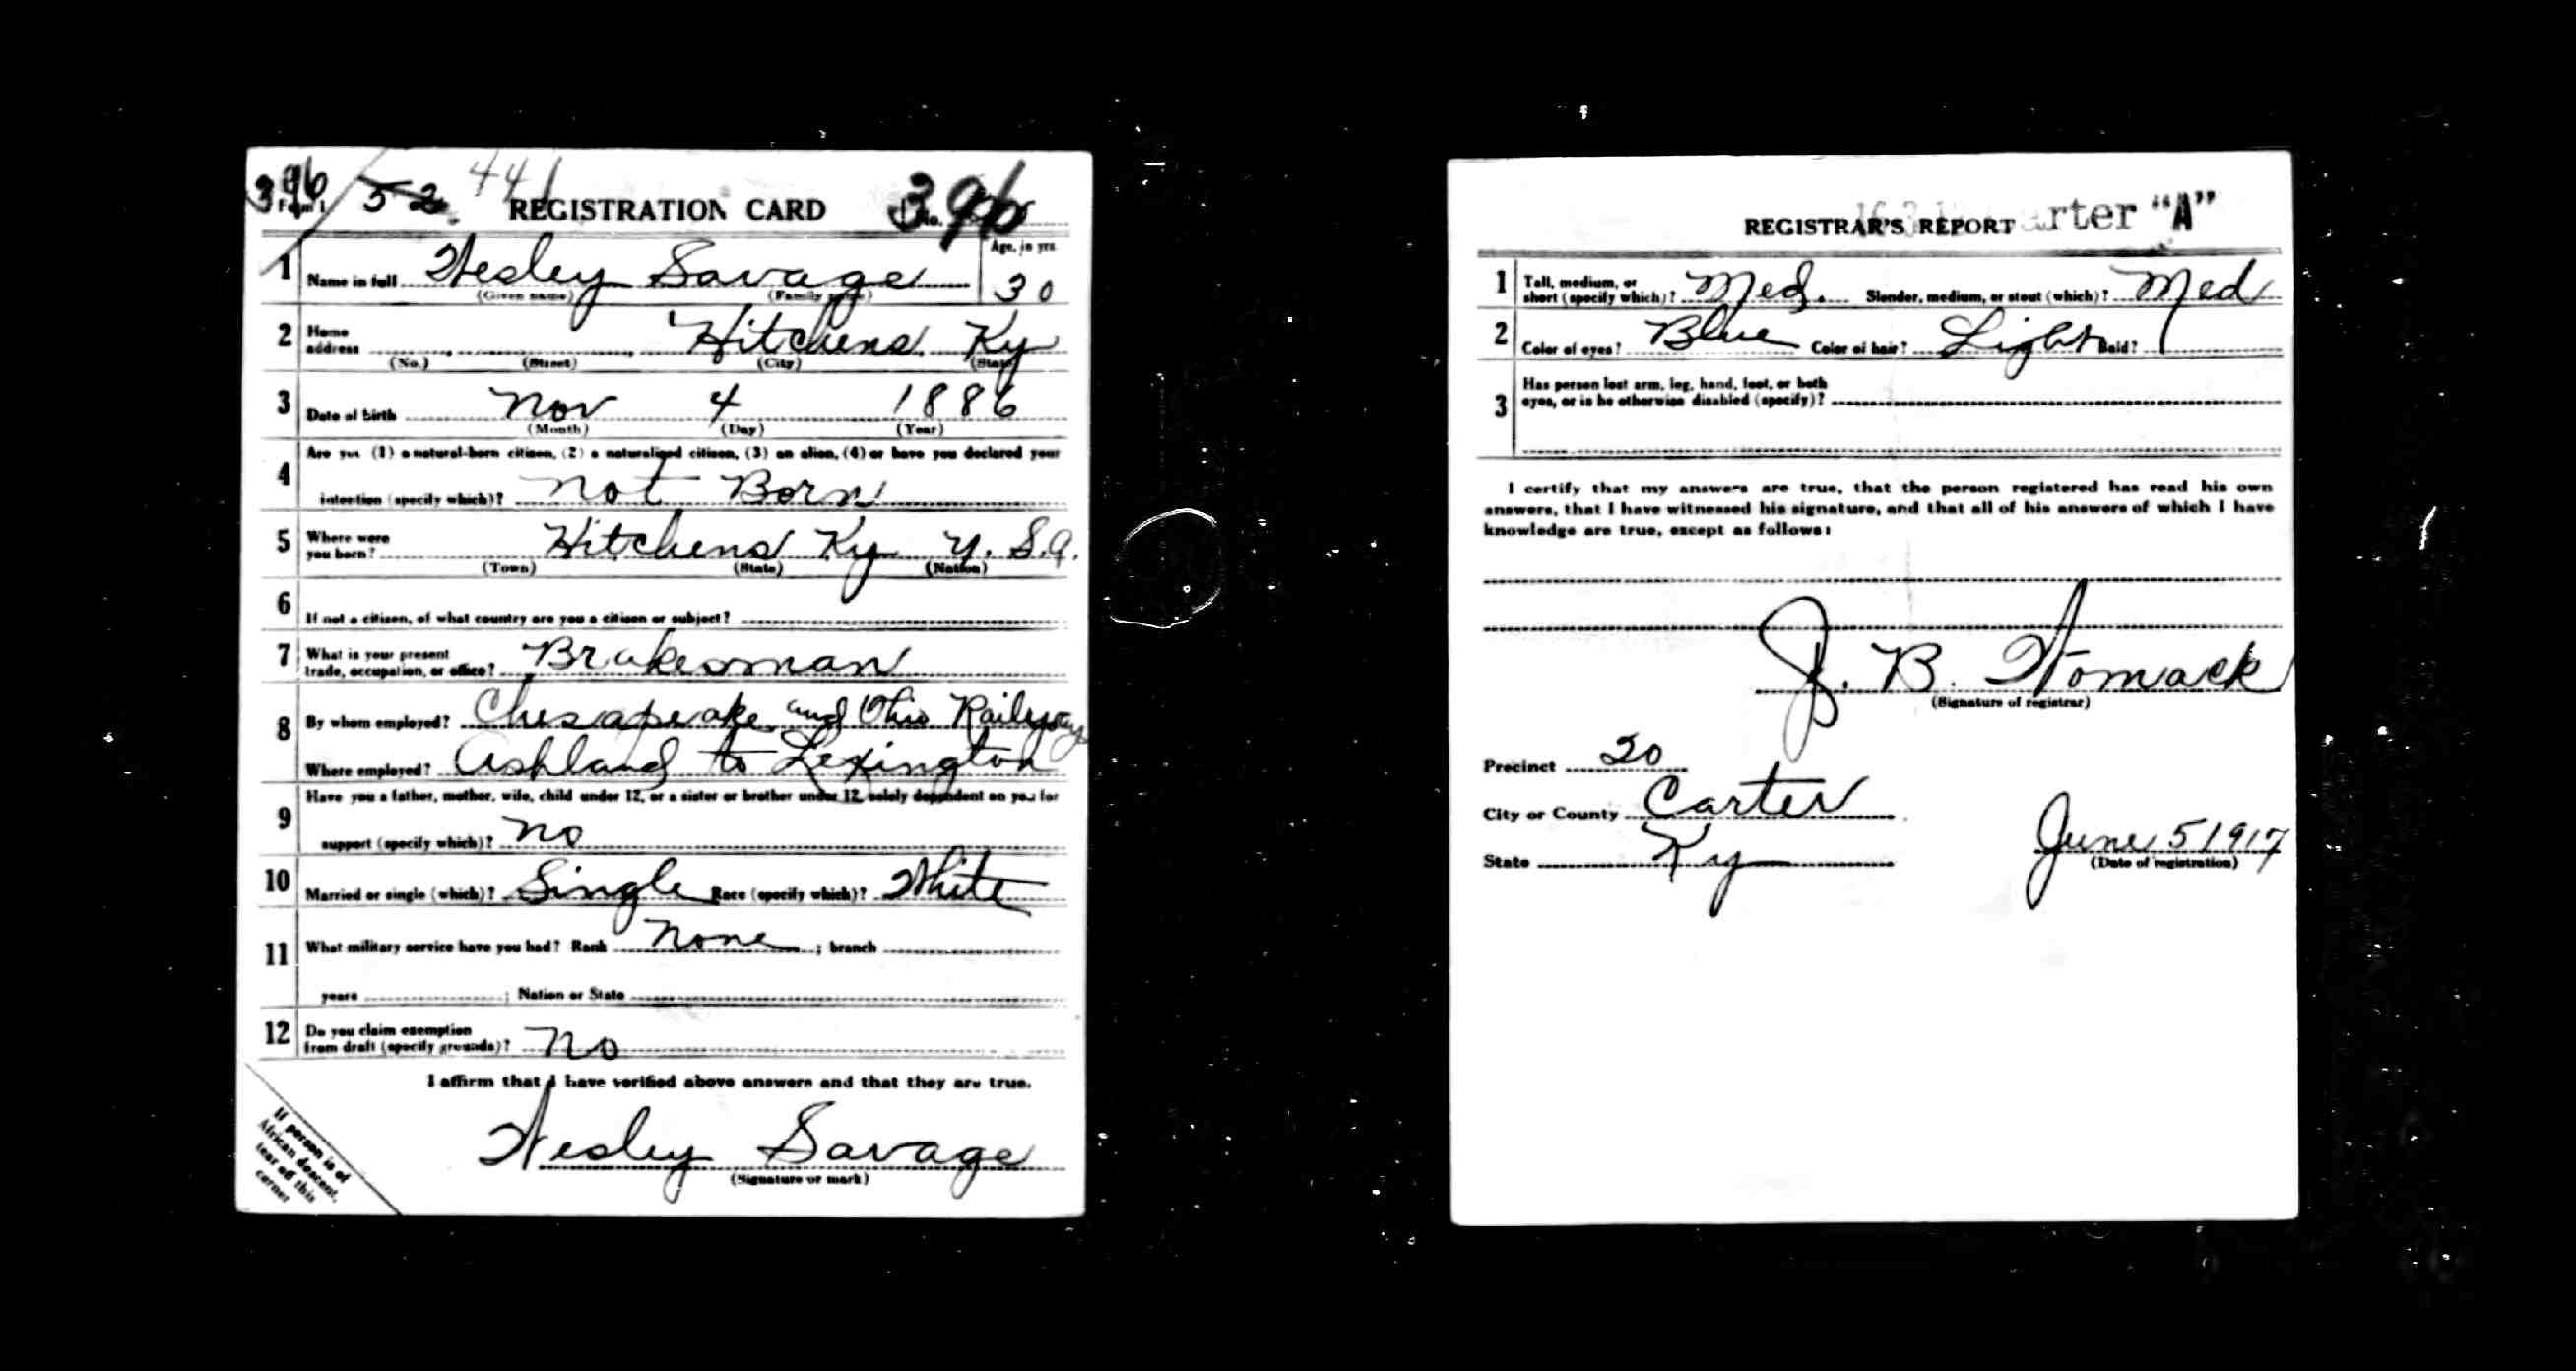 396 52 441
Form 1 REGISTRATION CARD No. 396
1 Name in full Wesley Savage Age, in yrs. 30
(Given name) (Family name)
2 Home address Hitchens Ky
(No.) (Street) (City) (State)
3 Date of birth Nov 4 1886
(Month) (Day) (Year)
4 Are you (1) a natural-born citizen, (2) a naturalized citizen, (3) an alien, (4) or have you declared your
intention (specify which)? Nat Born
5 Where were you born? Hitchens Ky U.S.A.
(Town) (State) (Nation)
6 If not a citizen, of what country are you a citizen or subject?
7 What is your present trade, occupation, or office? Brakesman
8 By whom employed? Chesapeake and Ohio Railway
Where employed? Ashland to Lexington
9 Have you a father, mother, wife, child under 12, or a sister or brother under 12, solely dependent on you for
support (specify which)? No
10 Married or single (which)? Single Race (specify which)? White
11 What military service have you had? Rank None ; branch
years ; Nation or State
12 Do you claim exemption from draft (specify grounds)? No
I affirm that I have verified above answers and that they are true.
Wesley Savage
(Signature or mark)
If person is of
African descent,
tear off this
corner
REGISTRAR'S REPORT arter "A"
1 Tall, medium, or short (specify which)? Med. Slender, medium, or stout (which)? Med
2 Color of eyes? Blue Color of hair? Light Bald?
3 Has person lost arm, leg, hand, foot, or both
eyes, or is he otherwise disabled (specify)?
I certify that my answers are true, that the person registered has read his own
answers, that I have witnessed his signature, and that all of his answers of which I have
knowledge are true, except as follows:
J. B. Womack
(Signature of registrar)
Precinct 20
City or County Carter
State Ky
June 5 1917
(Date of registration)